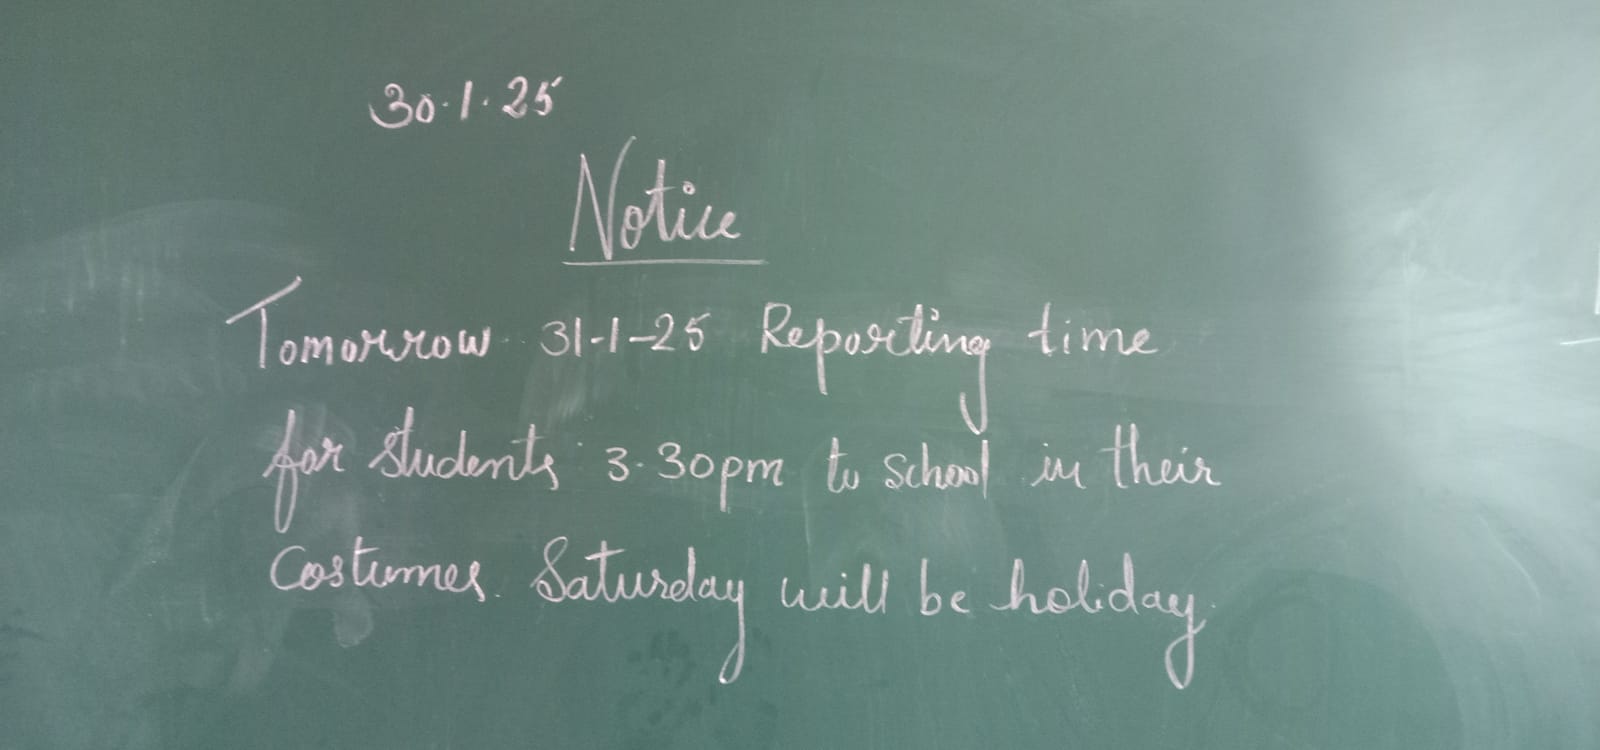 30.1.25
Notice
Tomorrow 31-1-25 Reporting time
for students 3.30pm to school in their
Costumes. Saturday will be holiday.